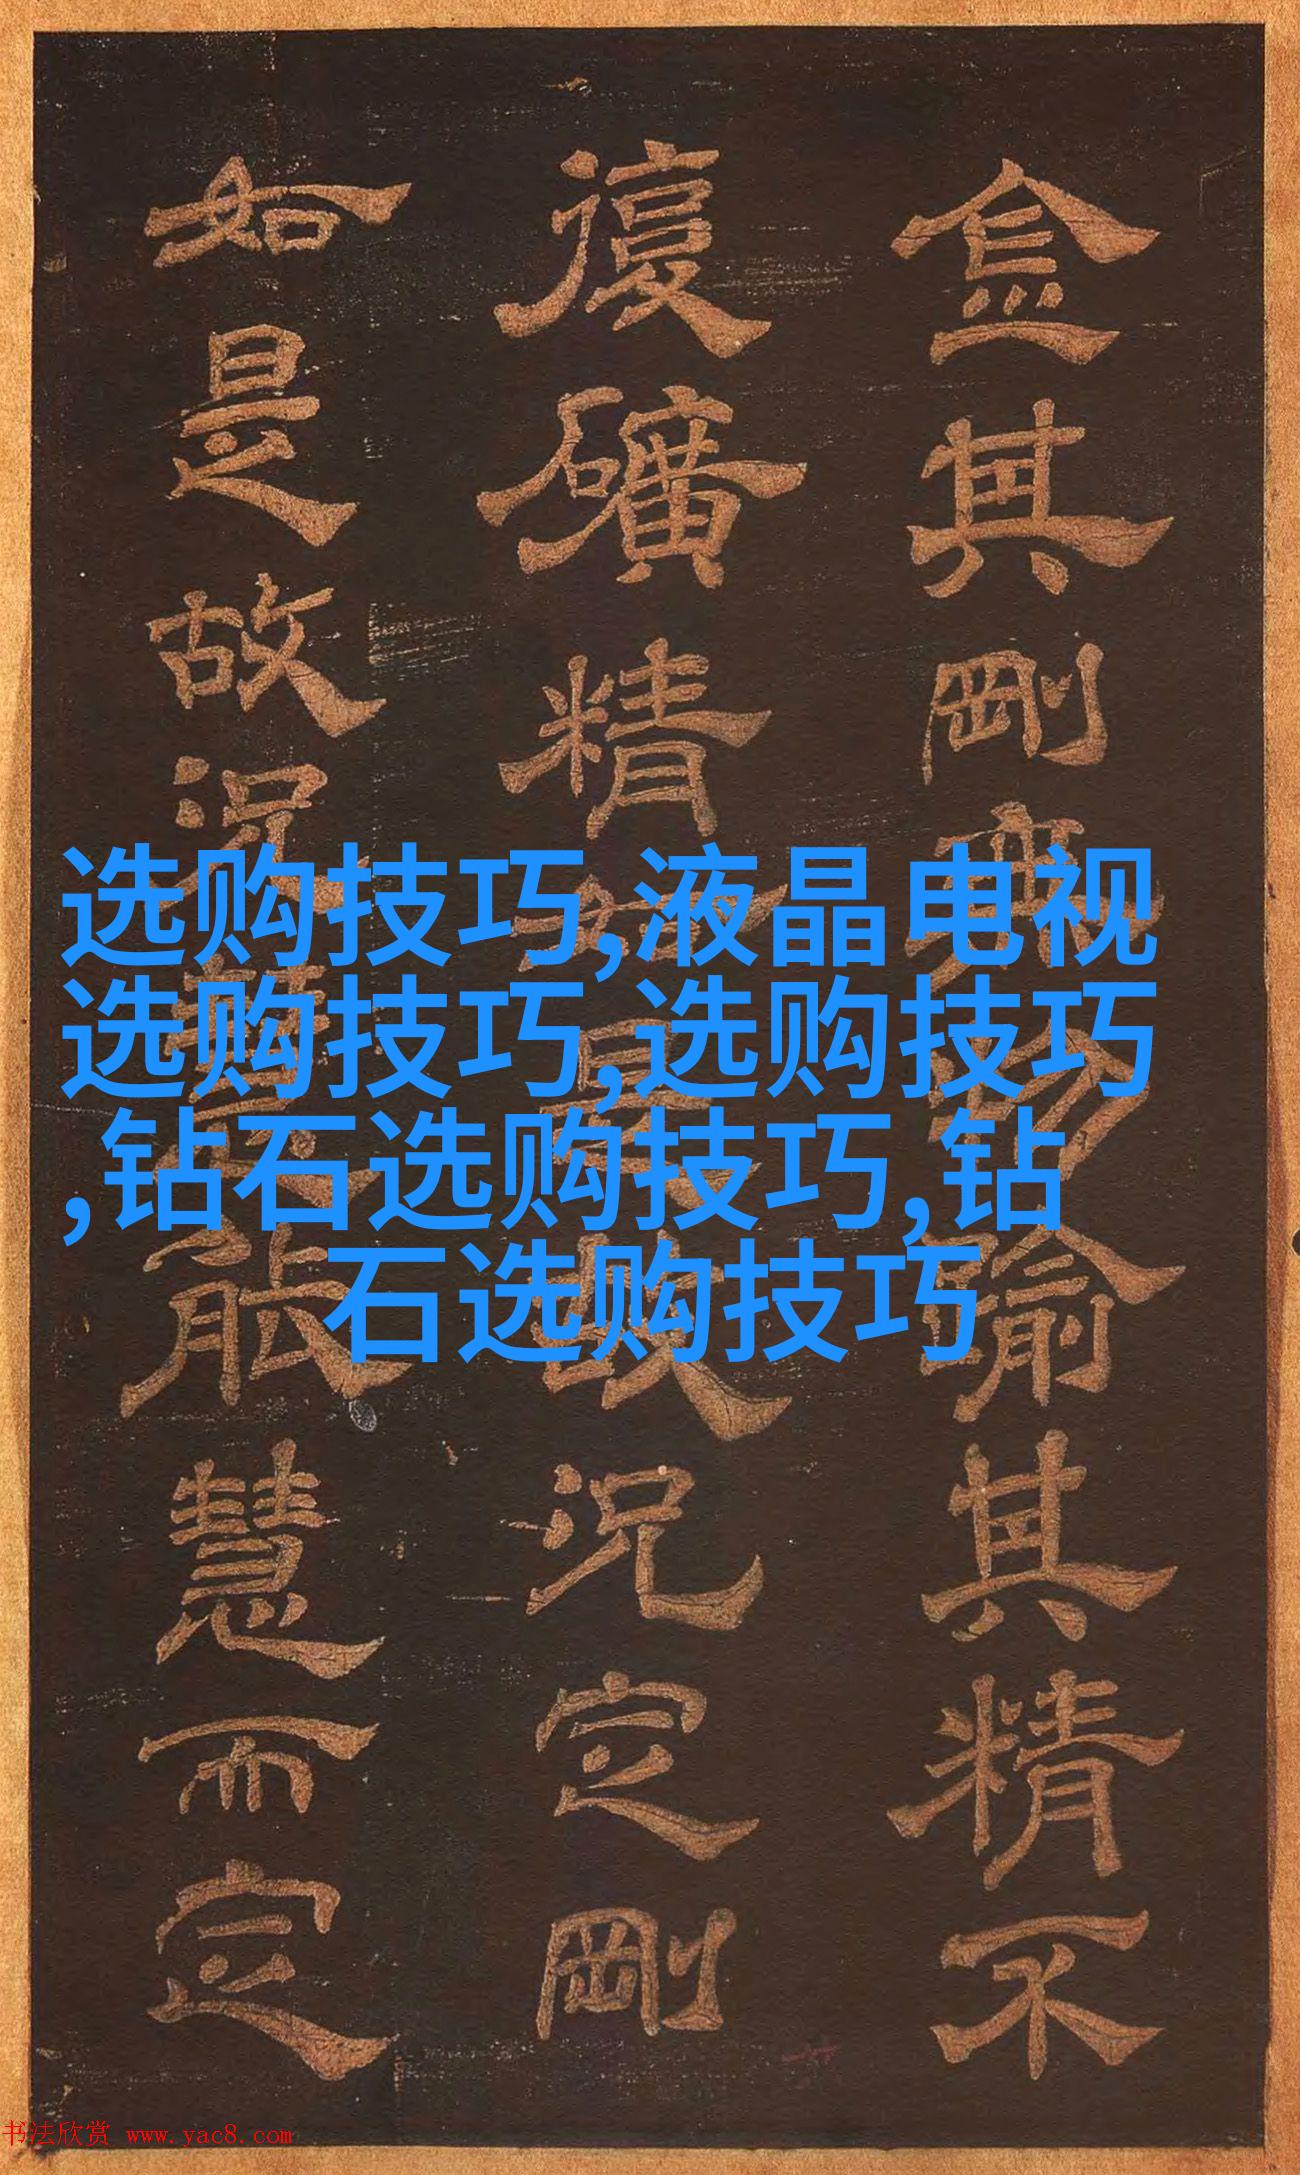 金其剛亦勿踰其精不
復礦精如是故況定剛
如是故況能慧而定
选购技巧,液晶电视
选购技巧,选购技巧
,钻石选购技巧,钻
石选购技巧
书法欣赏 www.yac8.com